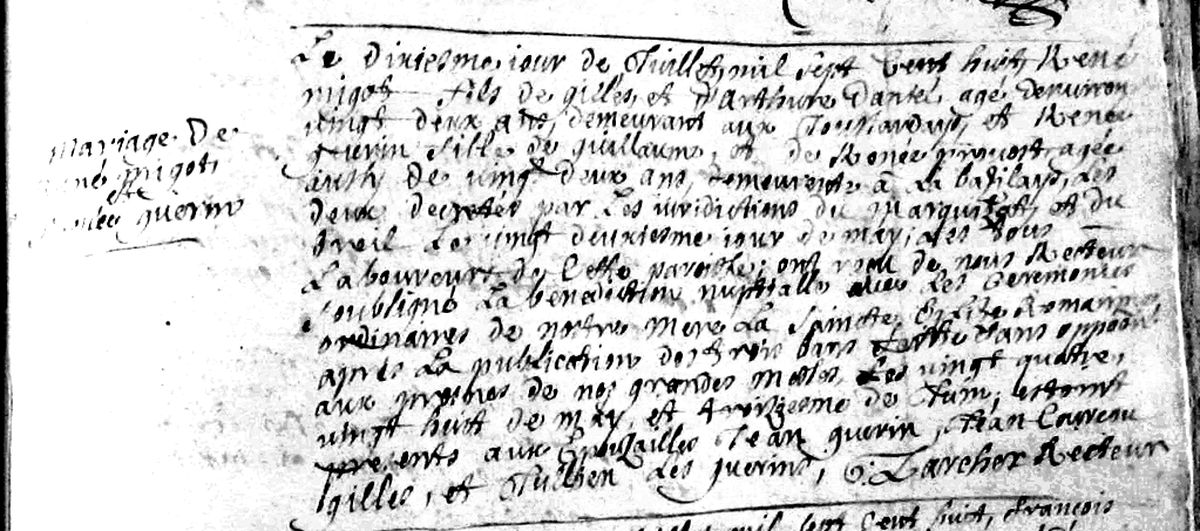 Le dixiesme jour de Juillet mil sept cent huit, René
migot fils de gilles, et d'Arthure Danté agé denviron
vingt deux ans, demeurant aux et Renée
guerin fille de guillaume, et de Renée provost agée
aussy de vingt deux ans, demeurente à La baZilays, Les
deux decretés par Les juridictions du et du
breil Le vingt deuxiesme jour de may, Les tous
Laboureurs de Cette paroisse; ont reçu de nous Recteur
soubsigné La benediction nuptialle avec Les Ceremonies
ordinaires de nostre mere La Saincte Eglise Romaine
après La publication des trois bans faitte sans opposōn
aux prosnes de nos grandes messes, Les vingt quatre,
vingt huit de may, et troiziesme de Juin; estants
presents aux Epouzailles Jean guerin, Jean Couveau
gilles, et Jullien Les guerins, G: Larcher Recteur
Mariage De
René Migot,
et
Renée guerin
mil sept cent huit, François